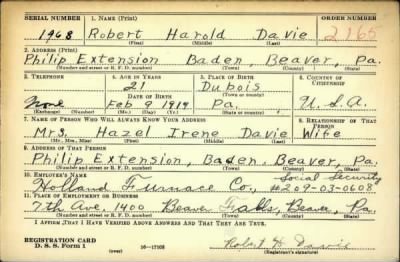 SERIAL NUMBER 1. NAME (Print) ORDER NUMBER
1968 Robert Harold Davie 2165
(First) (Middle) (Last)
2. ADDRESS (Print)
Philip Extension Baden, Beaver, Pa.
(Number and street or R. F. D. number) (Town) (County) (State)
3. TELEPHONE 4. AGE IN YEARS 5. PLACE OF BIRTH 6. COUNTRY OF CITIZENSHIP
21 Dubois
DATE OF BIRTH (Town or county)
None Feb 9 1919 Pa. U.S.A.
(Exchange) (Number) (Mo.) (Day) (Yr.) (State or country)
7. NAME OF PERSON WHO WILL ALWAYS KNOW YOUR ADDRESS 8. RELATIONSHIP OF THAT PERSON
Mrs. Hazel Irene Davie Wife
(Mr., Mrs., Miss) (First) (Middle) (Last)
9. ADDRESS OF THAT PERSON
Philip Extension, Baden, Beaver, Pa.
(Number and street or R. F. D. number) (Town) (County) (State)
10. EMPLOYER'S NAME Social Security
Holland Furnace Co., #209-03-0608
11. PLACE OF EMPLOYMENT OR BUSINESS
7th Ave. 1400 Beaver Falls, Beaver, Pa.
(Number and street or R. F. D. number) (Town) (County) (State)
I AFFIRM THAT I HAVE VERIFIED ABOVE ANSWERS AND THAT THEY ARE TRUE.
REGISTRATION CARD
D. S. S. Form 1 (over) 16—17105 Robert H Davie
(Registrant's signature)